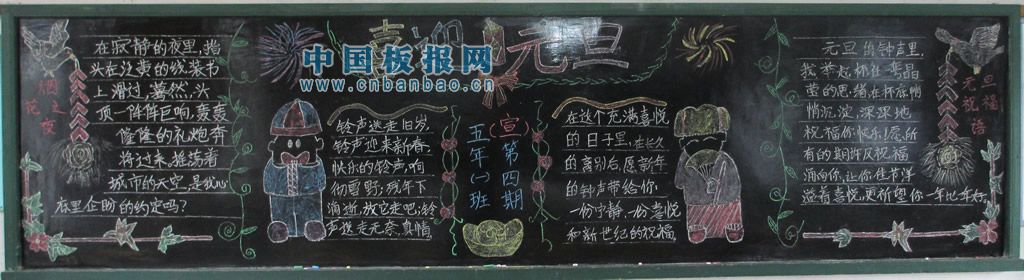 喜迎元旦
中国板报网
www.cnbanbao.cn
烟花之夜
在寂静的夜里,指
头在泛黄的线装书
上滑过,蓦然,头
顶一阵阵巨响,轰轰
隆隆的礼炮奔
将过来,摇荡着
城市的天空,是我心
底里企盼的约定吗?
铃声送走旧岁,
铃声迎来新春,
快乐的铃声,响
彻雪野;残年下
消逝,放它走吧;铃
声送走无奈,真情,
五年(一)班
(宣)第四期
在这个充满喜悦
的日子里,在长久
的离别后,愿新年
的钟声带给你,
一份宁静,一份喜悦
和新世纪的祝福。
元旦祝福语
元旦的钟声里,
我举起杯在晶
莹的思绪,在杯底悄
悄沉淀,深深地
祝福你快乐!愿所
有的期许及祝福
涌向你,让你佳节洋
溢着喜悦,更祈望你一年比一年好。